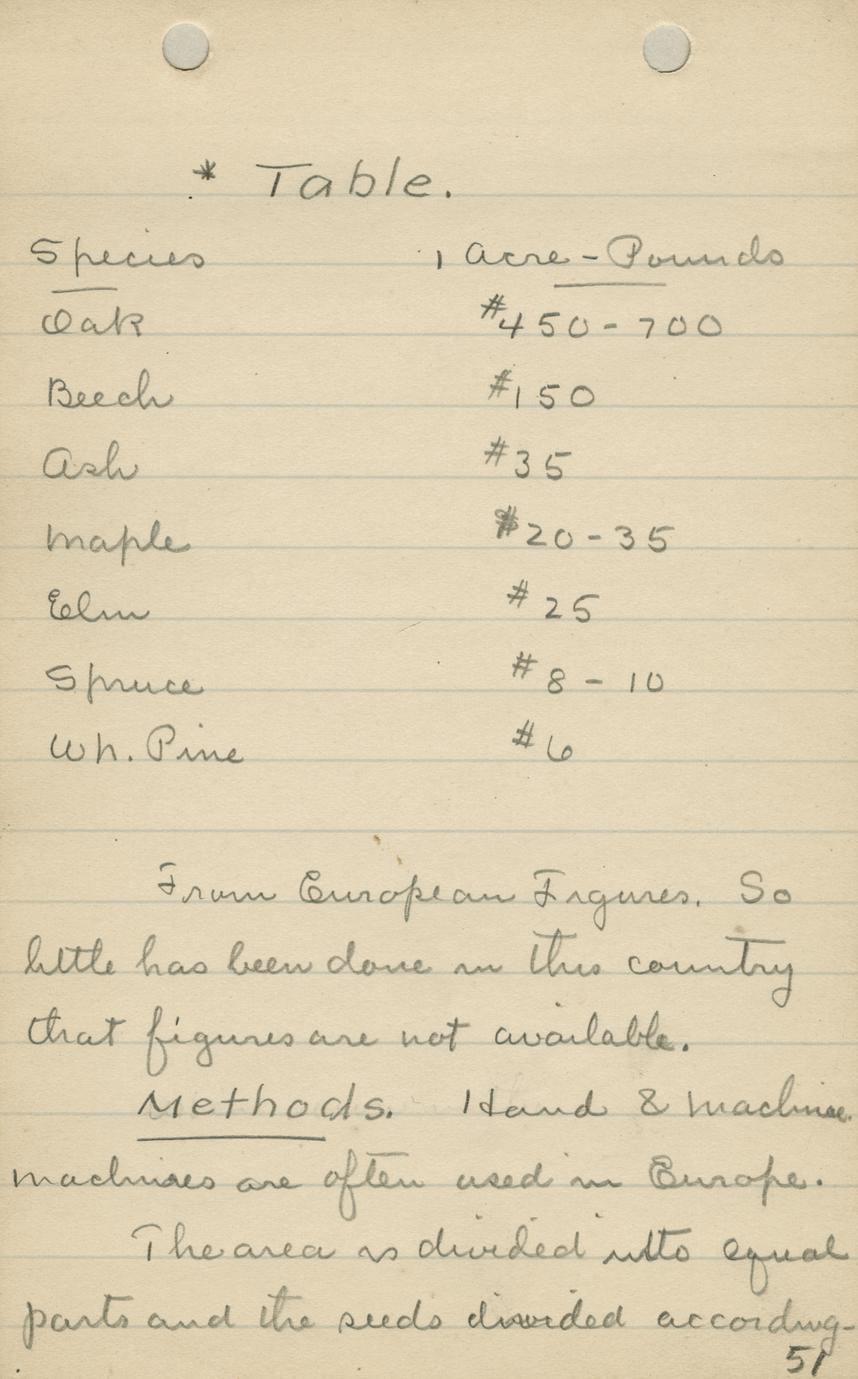 * Table.
Species 1 Acre - Pounds
Oak #450 - 700
Beech #150
Ash #35
Maple #20 - 35
Elm #25
Spruce #8 - 10
Wh. Pine #6
From European Figures. So
little has been done in this country
that figures are not available.
Methods. Hand & Machine.
machines are often used in Europe.
The area is divided into equal
parts and the seeds divided according-
51